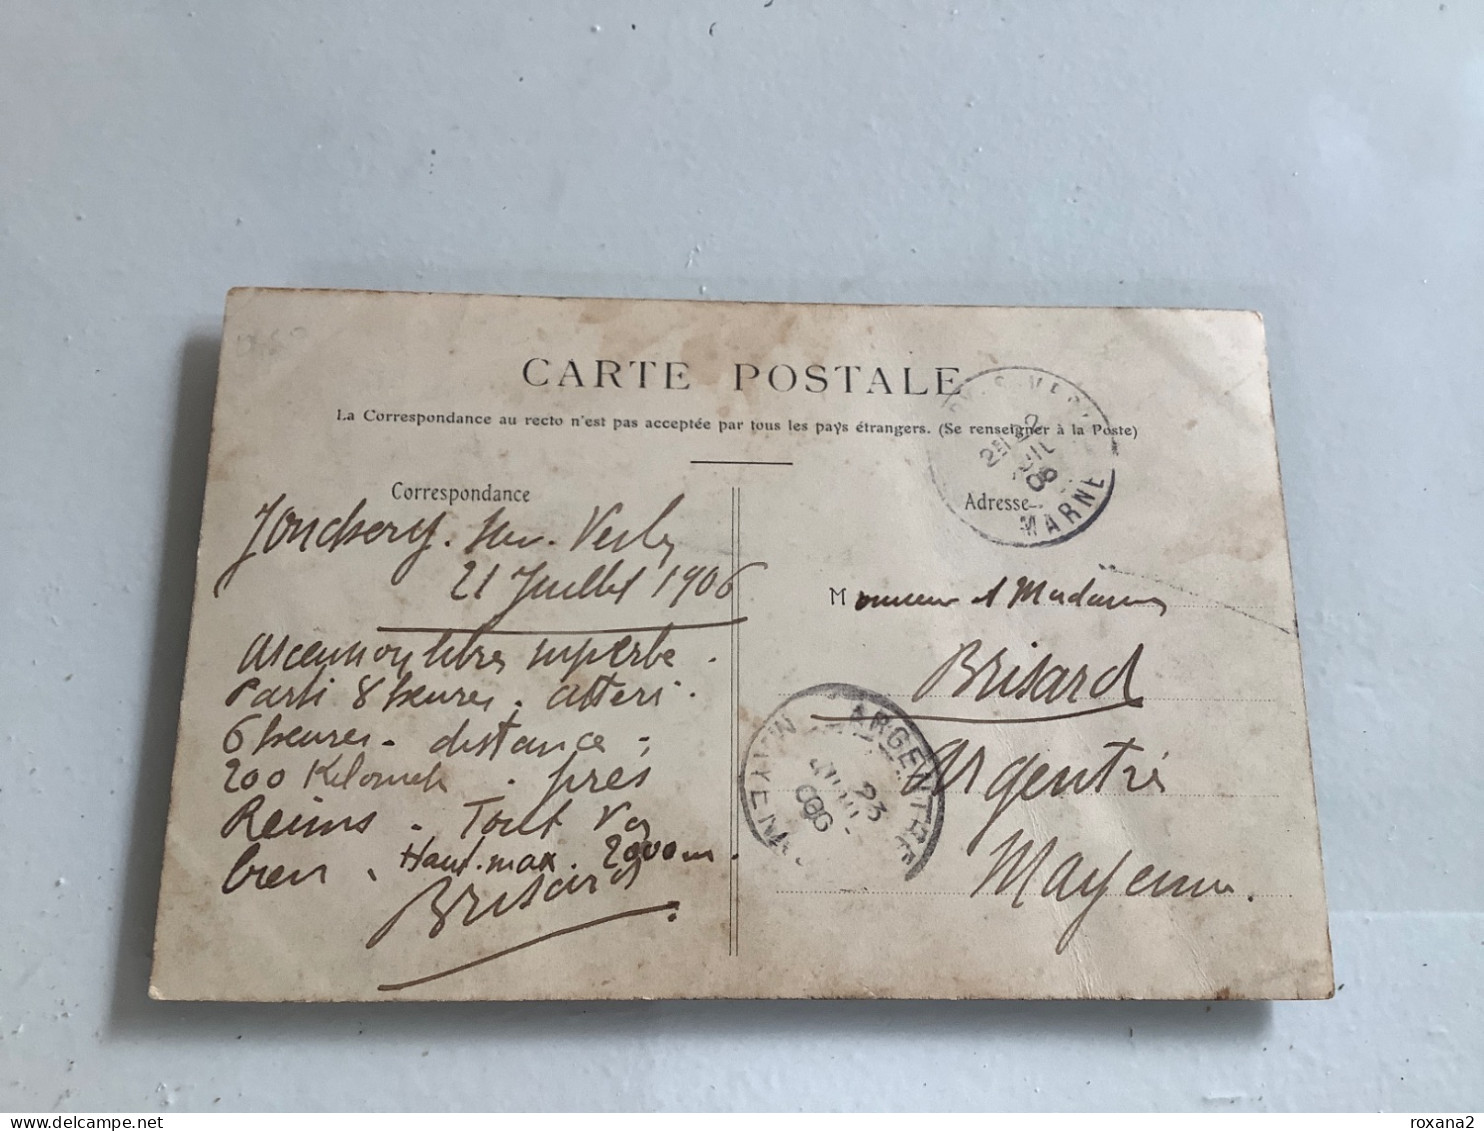 CARTE POSTALE
La Correspondance au recto n'est pas acceptée par tous les pays étrangers. (Se renseigner à la Poste)
Correspondance
Jonchery. sur. Vesle
21 Juillet 1906
Ascension libre superbe.
Parti 8 heures. atteri.
6 heures. distance:
200 Kilometr. près
Reims. Tout va
bien. Haut. max. 2000 m.
Brisard
Adresse
Monsieur et Madame
Brisard
Argentré
Mayenne.
MARNE
ARGENTRE
MAYENNE
23
06
delcampe.net
roxana2